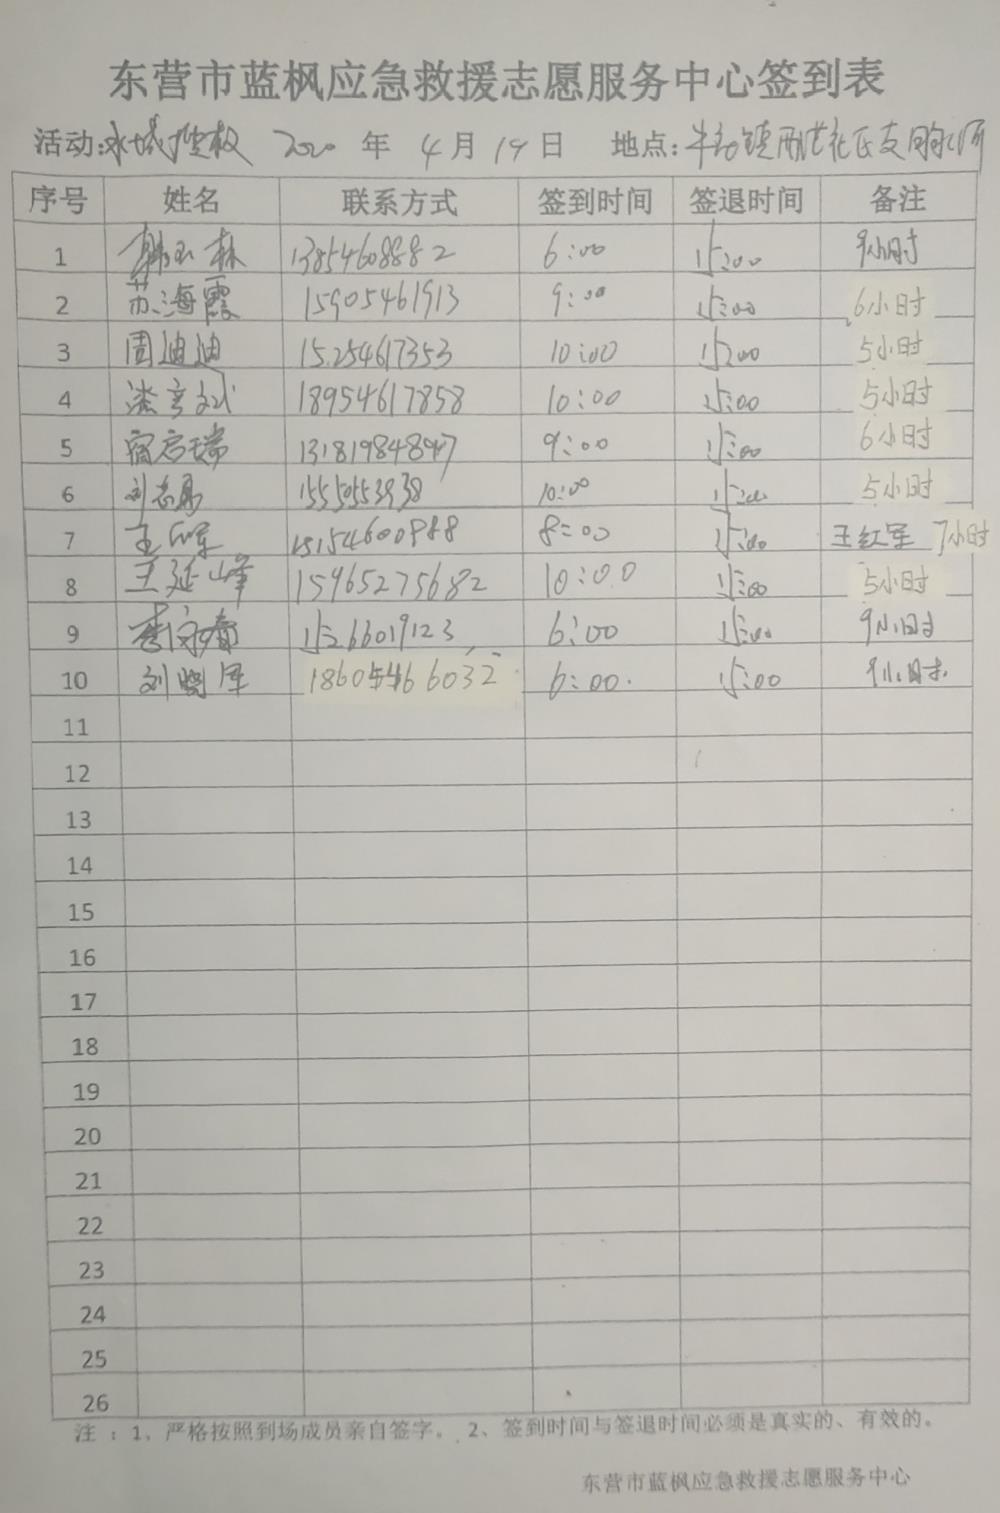 东营市蓝枫应急救援志愿服务中心签到表
活动: 2020 年 4 月 19 日 地点:
序号 姓名 联系方式 签到时间 签退时间 备注
1 韩玉林 13854608882 6:00 15:00 9小时
2 苏海霞 15905461913 9:00 15:00 6小时
3 周迪迪 15254617353 10:00 15:00 5小时
4 18954617858 10:00 15:00 5小时
5 宿启瑞 13181984897 9:00 15:00 6小时
6 10:00 15:00 5小时
7 王红军 15154600988 8:00 15:00 王红军 7小时
8 王延峰 15965275682 10:00 15:00 5小时
9 15266019123 6:00 15:00 9小时
10 刘晓军 6:00. 15:00 9小时
11
12
13
14
15
16
17
18
19
20
21
22
23
24
25
26
注：1、严格按照到场成员亲自签字。2、签到时间与签退时间必须是真实的、有效的。
东营市蓝枫应急救援志愿服务中心